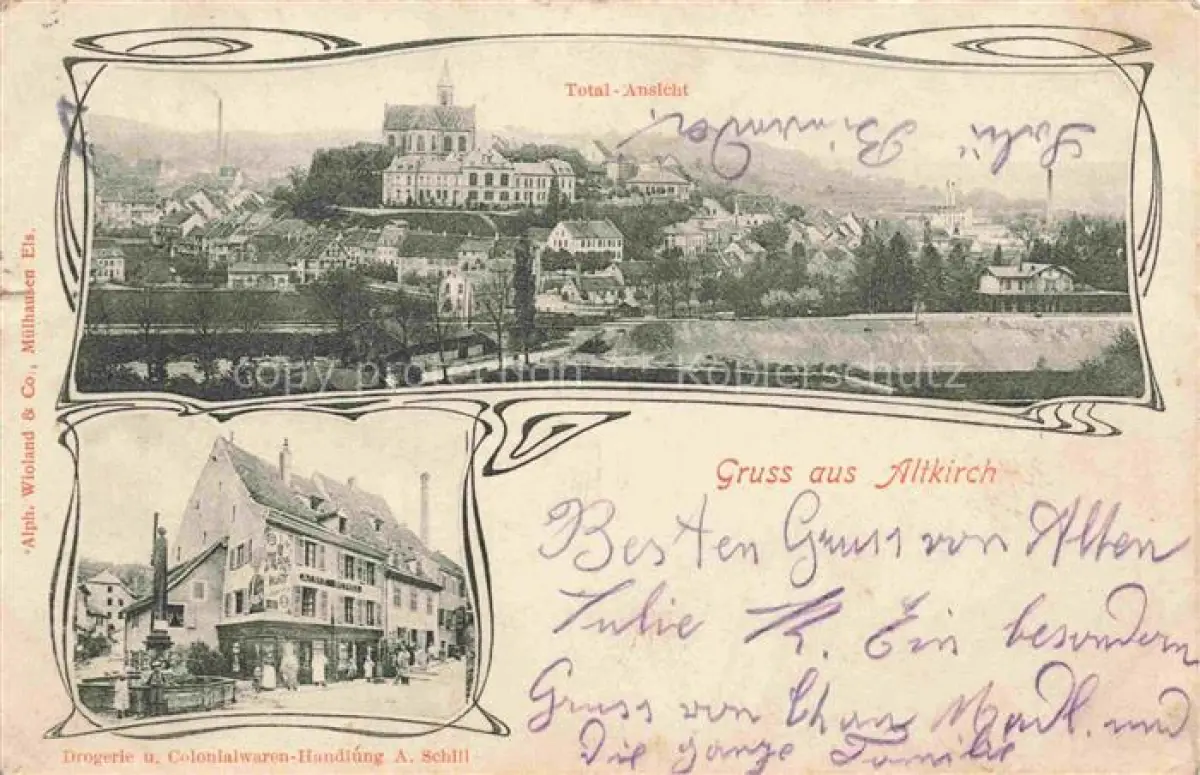 Total-Ansicht
Alph. Wioland & Co., Mülhausen Els.
copy protection Kopierschutz
Gruss aus Altkirch
Besten Gruss von Alten
Julie K. Ein besondern
Gruss von
und
Die ganze Familie
Drogerie u. Colonialwaren-Handlung A. Schill